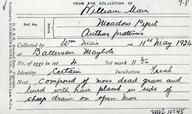 FROM THE COLLECTION OF
William Mair
Ref. No. Meadow Pipit
Anthus pratensis
Collected by Wm Mair on 11th May 1924
at Maybole
No. of eggs in set 4 Set mark
Identity Certain Incubation Fresh
Nest Composed of moss dead grass and
lined with hair placed in side of
sheep drain on open moor